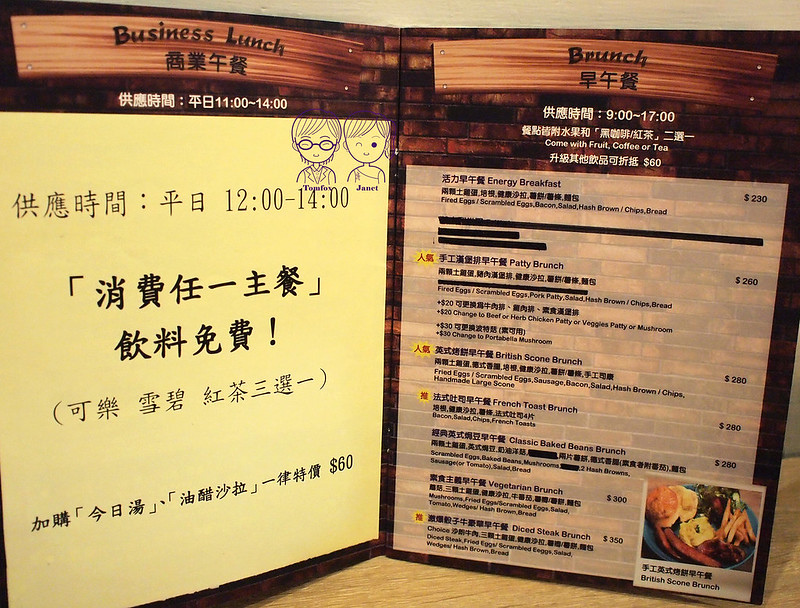 Business Lunch
商業午餐
供應時間：平日11:00~14:00
Tomfox
Janet
供應時間：平日 12:00-14:00
「消費任一主餐」
飲料免費！
（可樂 雪碧 紅茶三選一）
加購「今日湯」、「油醋沙拉」一律特價 $60
Brunch
早午餐
供應時間：9:00~17:00
餐點皆附水果和「黑咖啡/紅茶」二選一
Come with Fruit, Coffee or Tea
升級其他飲品可折抵 $60
活力早午餐 Energy Breakfast
兩顆土雞蛋,培根,健康沙拉,薯餅/薯條,麵包 $230
Fired Eggs / Scrambled Eggs,Bacon,Salad,Hash Brown / Chips,Bread
人氣 手工漢堡排早午餐 Patty Brunch
兩顆土雞蛋,豬肉漢堡排,健康沙拉,薯餅/薯條,麵包 $260
Fired Eggs / Scrambled Eggs,Pork Patty,Salad,Hash Brown / Chips,Bread
+$20 可更換為牛肉排、雞肉排、素食漢堡排
+$20 Change to Beef or Herb Chicken Patty or Veggies Patty or Mushroom
+$30 可更換波特菇 (素可用)
+$30 Change to Portabella Mushroom
人氣 英式烤餅早午餐 British Scone Brunch
兩顆土雞蛋,德式香腸,培根,健康沙拉,薯餅/薯條,手工司康 $280
Fried Eggs / Scrambled Eggs,Sausage,Bacon,Salad,Hash Brown / Chips,
Handmade Large Scone
推 法式吐司早午餐 French Toast Brunch
培根,健康沙拉,薯條,法式吐司4片 $280
Bacon,Salad,Chips,French Toasts
經典英式焗豆早午餐 Classic Baked Beans Brunch
兩顆土雞蛋,英式焗豆,奶油洋菇, 兩片薯餅,德式香腸(素食者附番茄),麵包 $280
Scrambled Eggs,Baked Beans,Mushrooms, ,2 Hash Browns,
Sausage(or Tomato),Salad,Bread
素食主義早午餐 Vegetarian Brunch
蘑菇,三顆土雞蛋,健康沙拉,牛番茄,薯塊/薯餅,麵包 $300
Mushrooms,Fried Eggs/Scrambled Eggs,Salad,
Tomato,Wedges/ Hash Brown,Bread
推 激爆骰子牛豪華早午餐 Diced Steak Brunch
Choice 沙朗牛肉,三顆土雞蛋,健康沙拉,薯塊/薯餅,麵包 $350
Diced Steak,Fried Eggs/ Scrambled Eggs,Salad,
Wedges/ Hash Brown,Bread
手工英式烤餅早午餐
British Scone Brunch